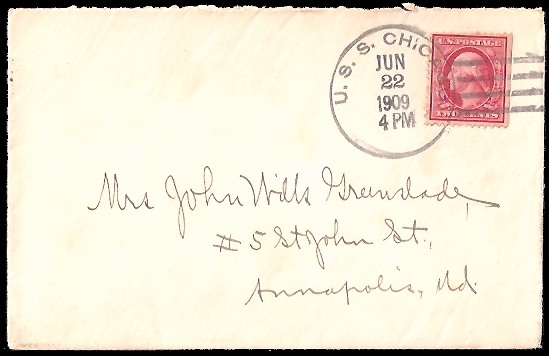 U. S. S. CHIC
JUN
22
1909
4 PM
U.S. POSTAGE
TWO CENTS
Mrs John Wills Greenslade,
#5 St John St.,
Annapolis, Md.